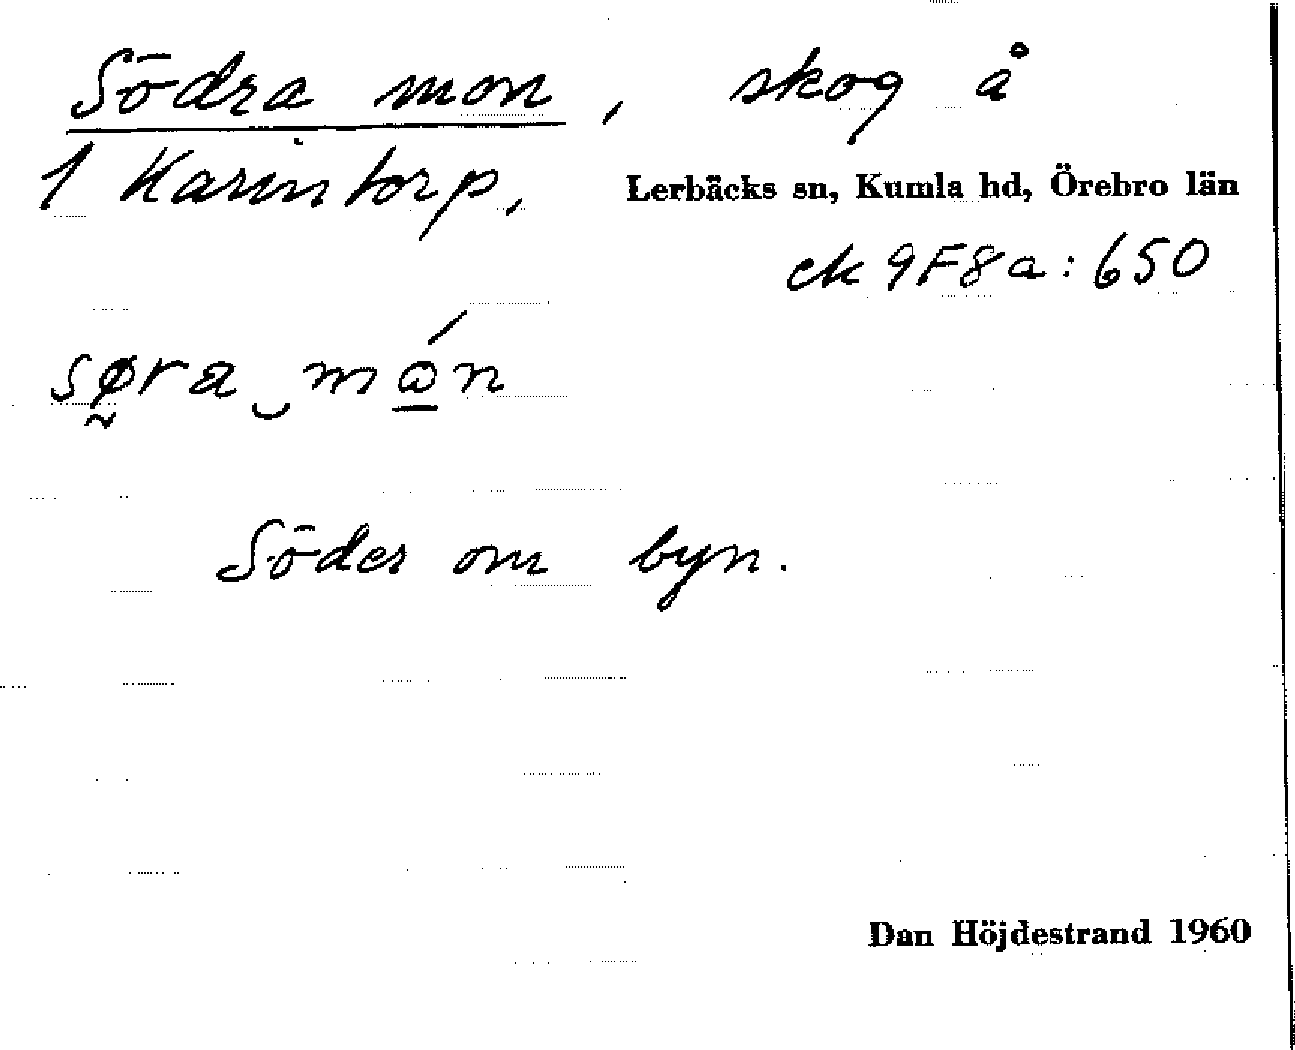 Södra mon, skog å
1 Karintorp, Lerbäcks sn, Kumla hd, Örebro län
ek 9F8a:650
sø̰ra‿mⱺ̲́n
Söder om byn.
Dan Höjdestrand 1960